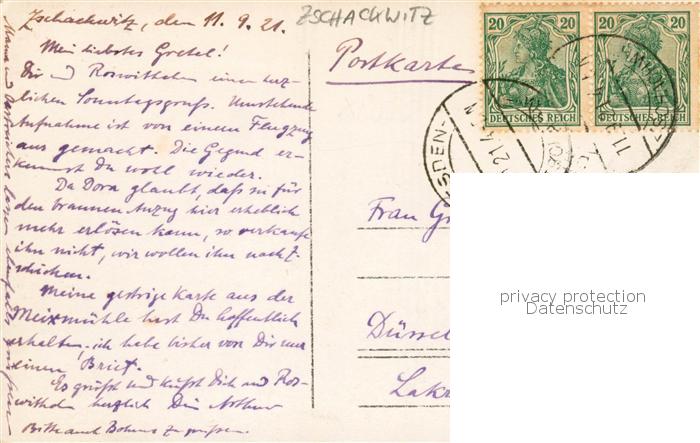 Zschachwitz, den 11.9.21.
ZSCHACHWITZ
Mein liebstes Gretel!
Dir und Roswithelen einen herz-
lichen Sonntagsgruß. Umstehende
Aufnahme ist von einem Flugzeug
aus gemacht. Die Gegend er-
kennst du wohl wieder.
Da Dora glaubt, daß sie für
den braunen Anzug hier erheblich
mehr erlösen kann, so verkaufe
ihn nicht, wir wollen ihn nach Z.
schicken.
Meine gestrige Karte aus der
Meixmühle hast Du hoffentlich
erhalten, ich habe bisher von Dir nur
einen Brief.
Es grüßt und küßt Dich und Ros-
withelen herzlich Dein Arthur
Bitte auch Bohms z. grüßen.
Mama und
lassen
grüßen
Postkarte
20 20
DEUTSCHES REICH
20 20
DEUTSCHES REICH
SDEN-
Frau Gr
Düssel
Lak
privacy protection
Datenschutz